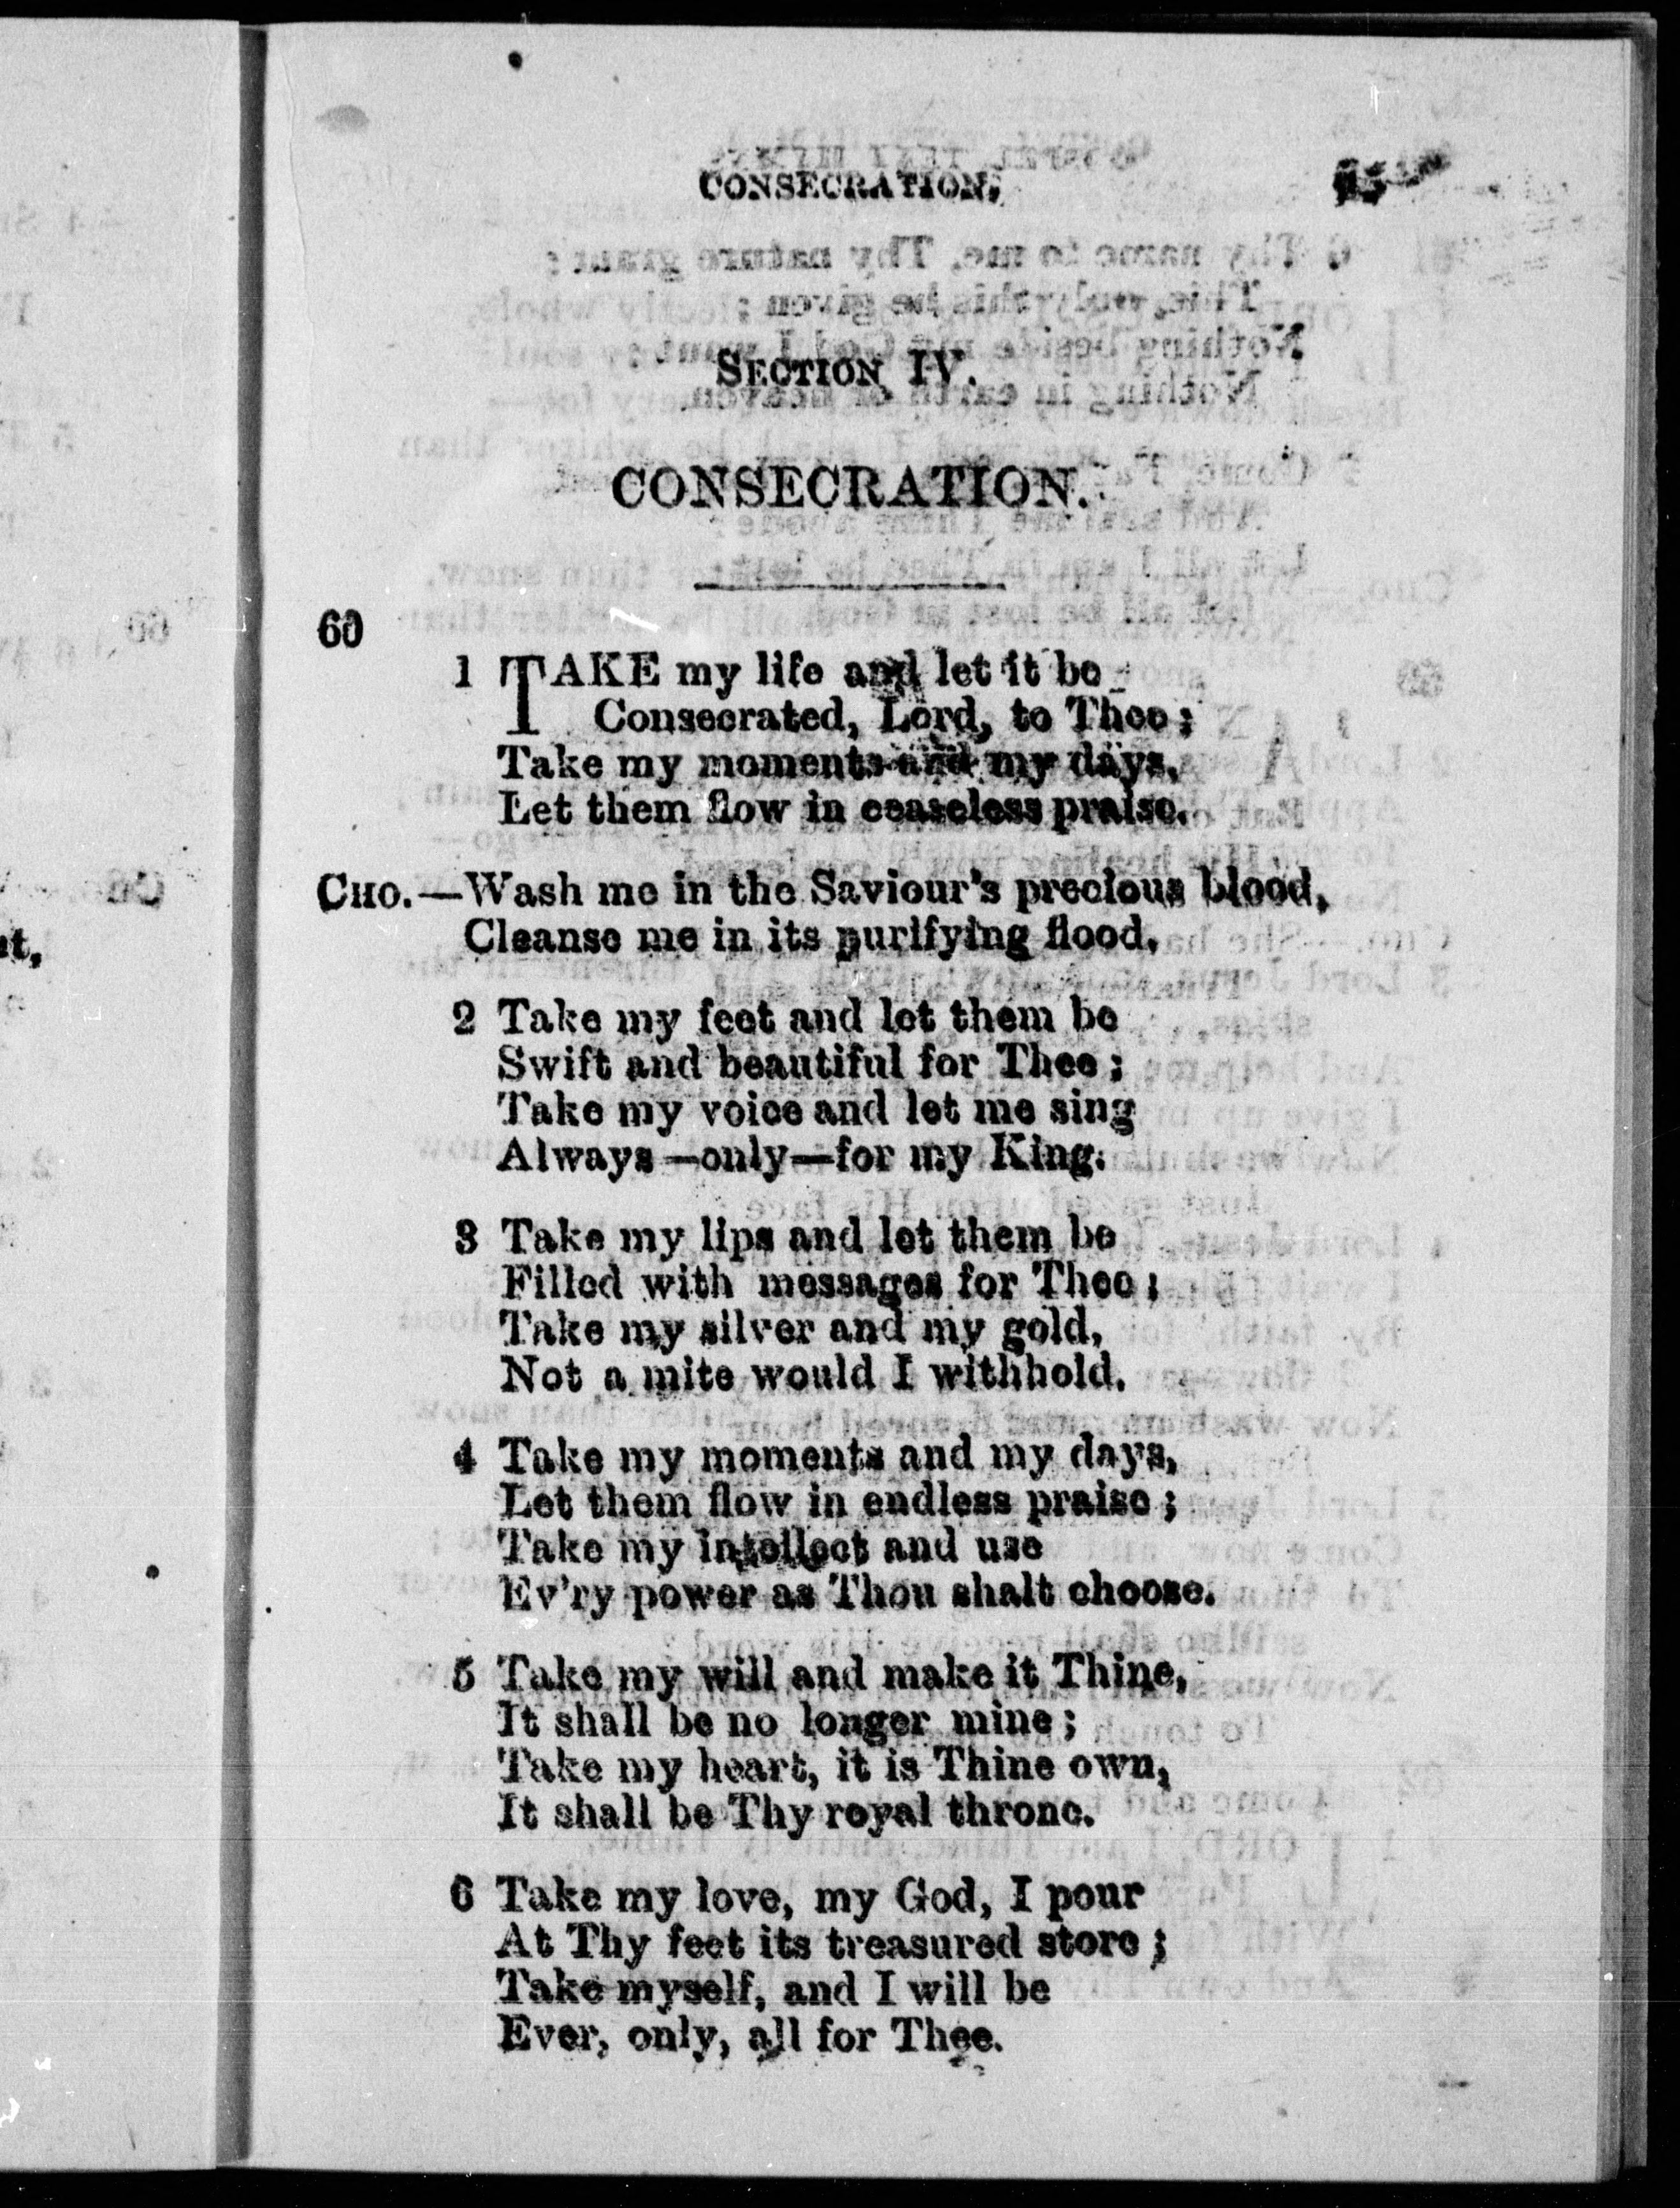 CONSECRATION.
SECTION IV.
CONSECRATION.
60
1 TAKE my life and let it be
Consecrated, Lord, to Thee;
Take my moments and my days,
Let them flow in ceaseless praise.
CHO.—Wash me in the Saviour's precious blood,
Cleanse me in its purifying flood.
2 Take my feet and let them be
Swift and beautiful for Thee;
Take my voice and let me sing
Always—only—for my King.
3 Take my lips and let them be
Filled with messages for Thee;
Take my silver and my gold,
Not a mite would I withhold.
4 Take my moments and my days,
Let them flow in endless praise;
Take my intellect and use
Ev'ry power as Thou shalt choose.
5 Take my will and make it Thine,
It shall be no longer mine;
Take my heart, it is Thine own,
It shall be Thy royal throne.
6 Take my love, my God, I pour
At Thy feet its treasured store;
Take myself, and I will be
Ever, only, all for Thee.